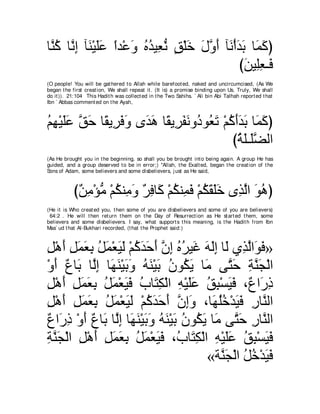 كَمَا بَدَأْنَآ أَوَّلَ خَلْقٍ نُّعِيدُهُ وَعْداً عَلَيْنَآ إِنَّا كُنَّا
(فَـعِلِينَ
(O people! You will be gathered to Allah while barefooted, naked and uncircumcised, (As We
began the first creation, We shall repeat it. (It is) a promise binding upon Us. Truly, We shall
do it)). 21:104 This Hadith was collected in the Two Sahihs. `Ali bin Abi Talhah reported that
Ibn `Abbas commented on the Ayah,
(كَمَا بَدَأَكُمْ تَعُودُونَفَرِيقًا هَدَى وَفَرِيقًا حَقَّ عَلَيْهِمُ
(الضَّلَـلَةُ
(As He brought you in the beginning, so shall you be brought into being again. A group He has
guided, and a group deserved to be in error;) "Allah, the Exalted, began the creation of the
Sons of Adam, some believers and some disbelievers, just as He said,
(هُوَ الَّذِى خَلَقَكُمْ فَمِنكُمْ كَافِرٌ وَمِنكُمْ مُّؤْمِنٌ)
(He it is Who created you, then some of you are disbelievers and some of you are believers)
64:2 . He will then return them on the Day of Resurrection as He started them, some
believers and some disbelievers. I say, what supports this meaning, is the Hadith from Ibn
Mas`ud that Al-Bukhari recorded, (that the Prophet said:)
«فَوَالَّذِي لَا إِلَهَ غَيْرُهُ إِنَّ أَحَدَكُمْ لَيَعْمَلُ بِعَمَلِ أَهْلِ
الْجَنَّةِ حَتَّى مَا يَكُونُ بَيْنَهُ وَبَيْنَهَا إِلَّا بَاعٌ أَوْ
ذِرَاعٌ، فَيَسْبِقُ عَلَيْهِ الْكِتَابُ فَيَعْمَلُ بِعَمَلِ أَهْلِ
النَّارِ فَيَدْخُلُهَا، وَإِنَّ أَحَدَكُمْ لَيَعْمَلُ بِعَمَلِ أَهْلِ
النَّارِ حَتَّى مَا يَكُونُ بَيْنَهُ وَبَيْنَهَا إِلَّا بَاعٌ أَوْ ذِرَاعٌ
فَيَسْبِقُ عَلَيْهِ الْكِتَابُ، فَيَعْمَلُ بِعَمَلِ أَهْلِ الْجَنَّةِ
فَيَدْخُلُ الْجَنَّةَ»